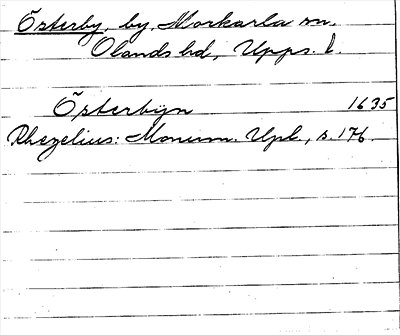 Österby, by, Morkarla sn.
Olands hd, Upps. l.
Österbijn 1635
Rhezelius: Monum. Upl., s. 176.